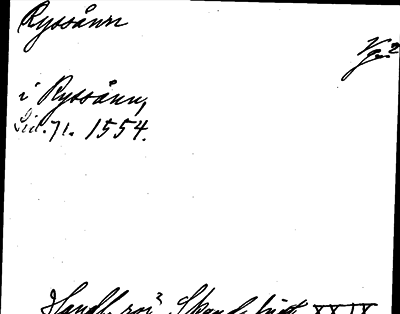 Ryssånn
Vg?
i Ryssånn,
Lid. 71. 1554.
Handl. rör. Skand. hist. XXIX